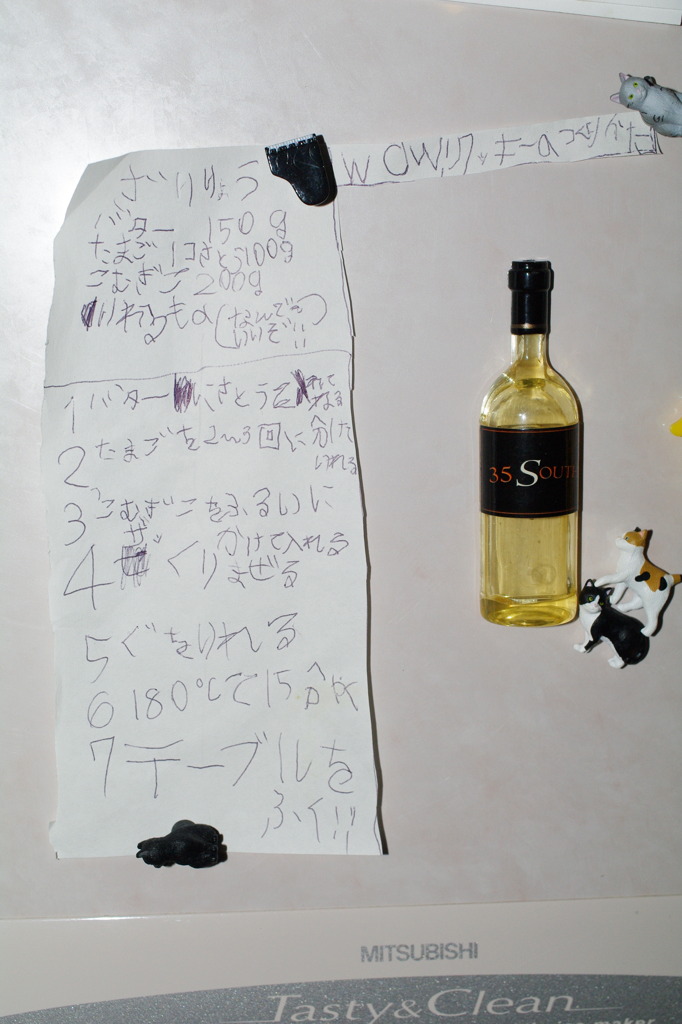 WOWクッキーのつくりかた
ざいりょう
バター 150g
たまご 1コ さとう100g
こむぎこ 200g
いれるもの(なんでも
いいぞ!!)
1 バター にさとうを 入れて
ねる
2 たまごを2〜3回に分けた
いれる
3 こむぎこをふるいに
かけて入れる
4 ざっくりまぜる
5 ぐをいれる
6 180℃で15分やく
7 テーブルを
ふく!!
35 SOUTH
MITSUBISHI
Tasty&Clean
maker